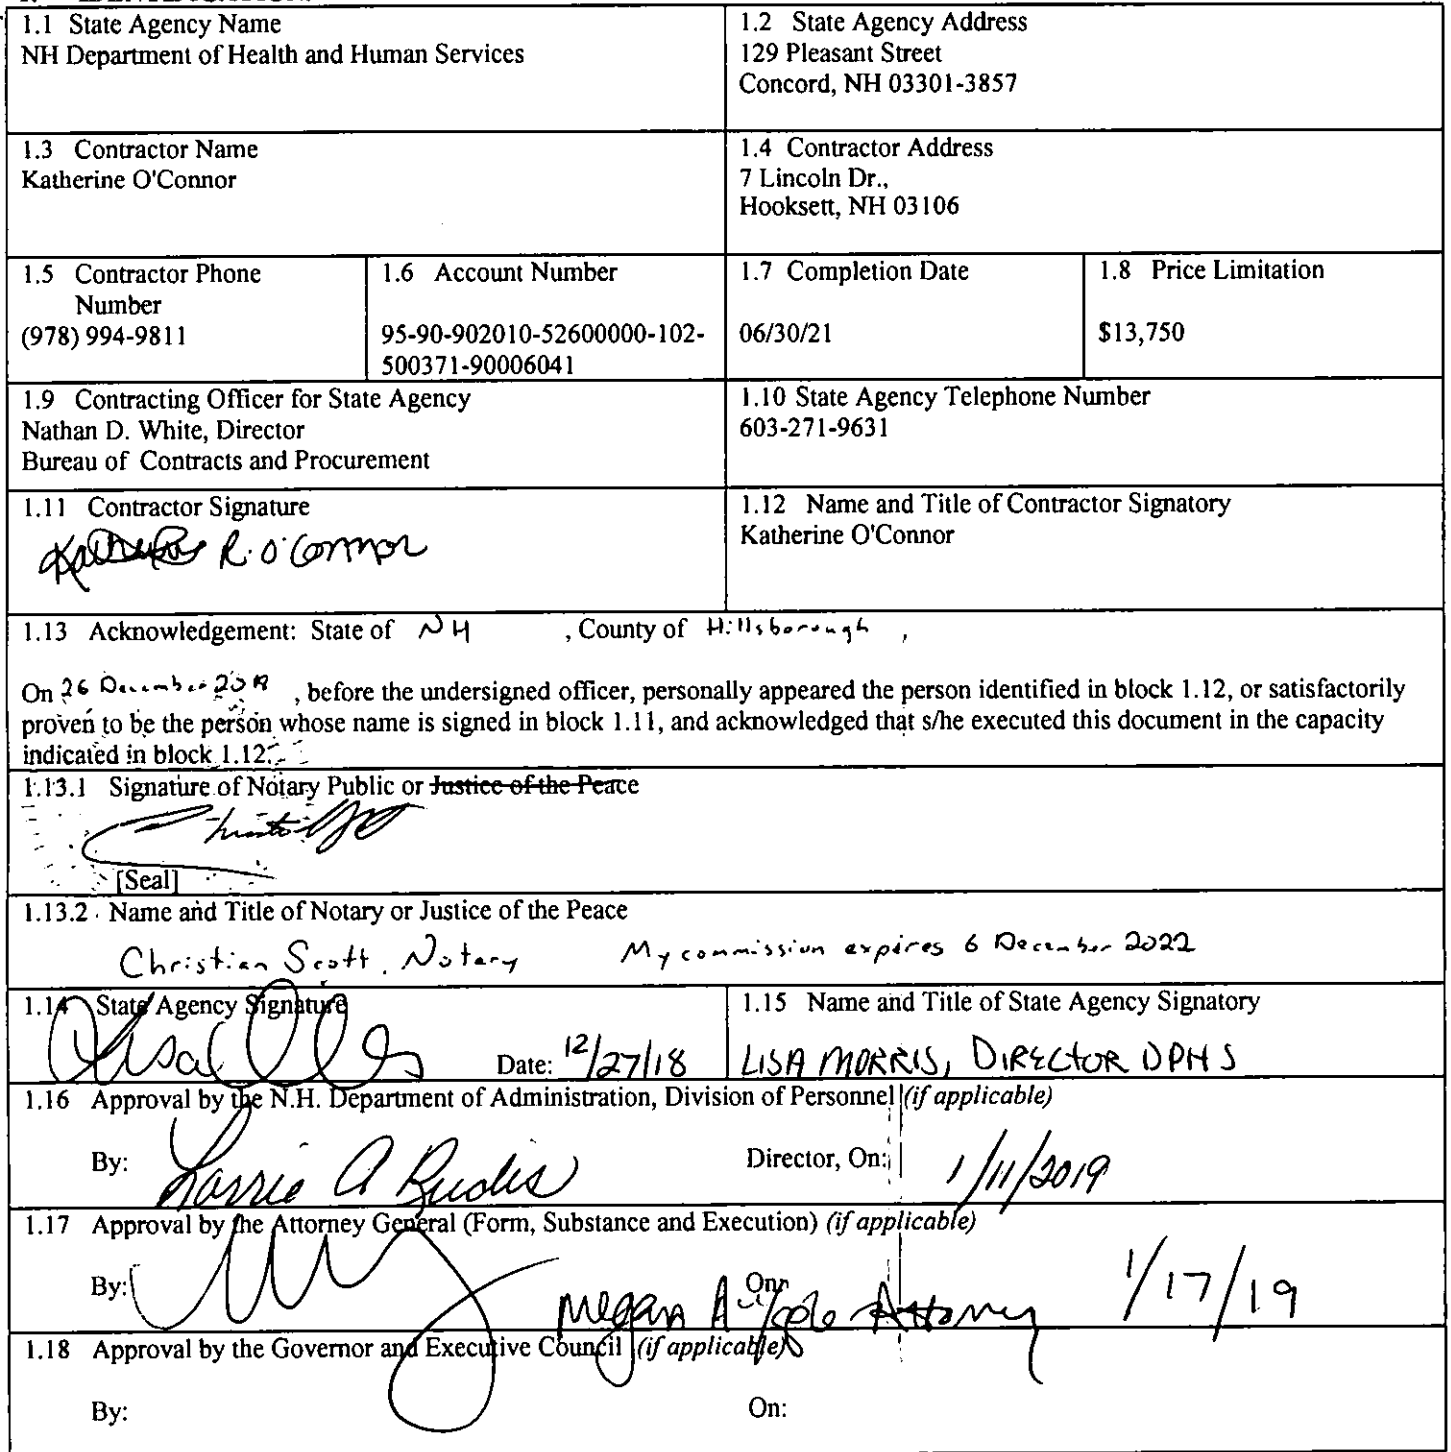 1.1 State Agency Name
NH Department of Health and Human Services
1.2 State Agency Address
129 Pleasant Street
Concord, NH 03301-3857
1.3 Contractor Name
Katherine O'Connor
1.4 Contractor Address
7 Lincoln Dr.,
Hooksett, NH 03106
1.5 Contractor Phone
Number
(978) 994-9811
1.6 Account Number
95-90-902010-52600000-102-
500371-90006041
1.7 Completion Date
06/30/21
1.8 Price Limitation
$13,750
1.9 Contracting Officer for State Agency
Nathan D. White, Director
Bureau of Contracts and Procurement
1.10 State Agency Telephone Number
603-271-9631
1.11 Contractor Signature
R. O'Connor
1.12 Name and Title of Contractor Signatory
Katherine O'Connor
1.13 Acknowledgement: State of NH , County of Hillsborough ,
On 26 December , before the undersigned officer, personally appeared the person identified in block 1.12, or satisfactorily
proven to be the person whose name is signed in block 1.11, and acknowledged that s/he executed this document in the capacity
indicated in block 1.12.
1.13.1 Signature of Notary Public or Justice of the Peace
[Seal]
1.13.2 Name and Title of Notary or Justice of the Peace
Christian Scott, Notary My commission expires 6 December 2022
1.14 State Agency Signature
Date: 12/27/18
1.15 Name and Title of State Agency Signatory
LISA MORRIS, DIRECTOR DPHS
1.16 Approval by the N.H. Department of Administration, Division of Personnel (if applicable)
By: Director, On: 1/11/2019
1.17 Approval by the Attorney General (Form, Substance and Execution) (if applicable)
By: On: Megan A Attorney 1/17/19
1.18 Approval by the Governor and Executive Council (if applicable)
By: On: